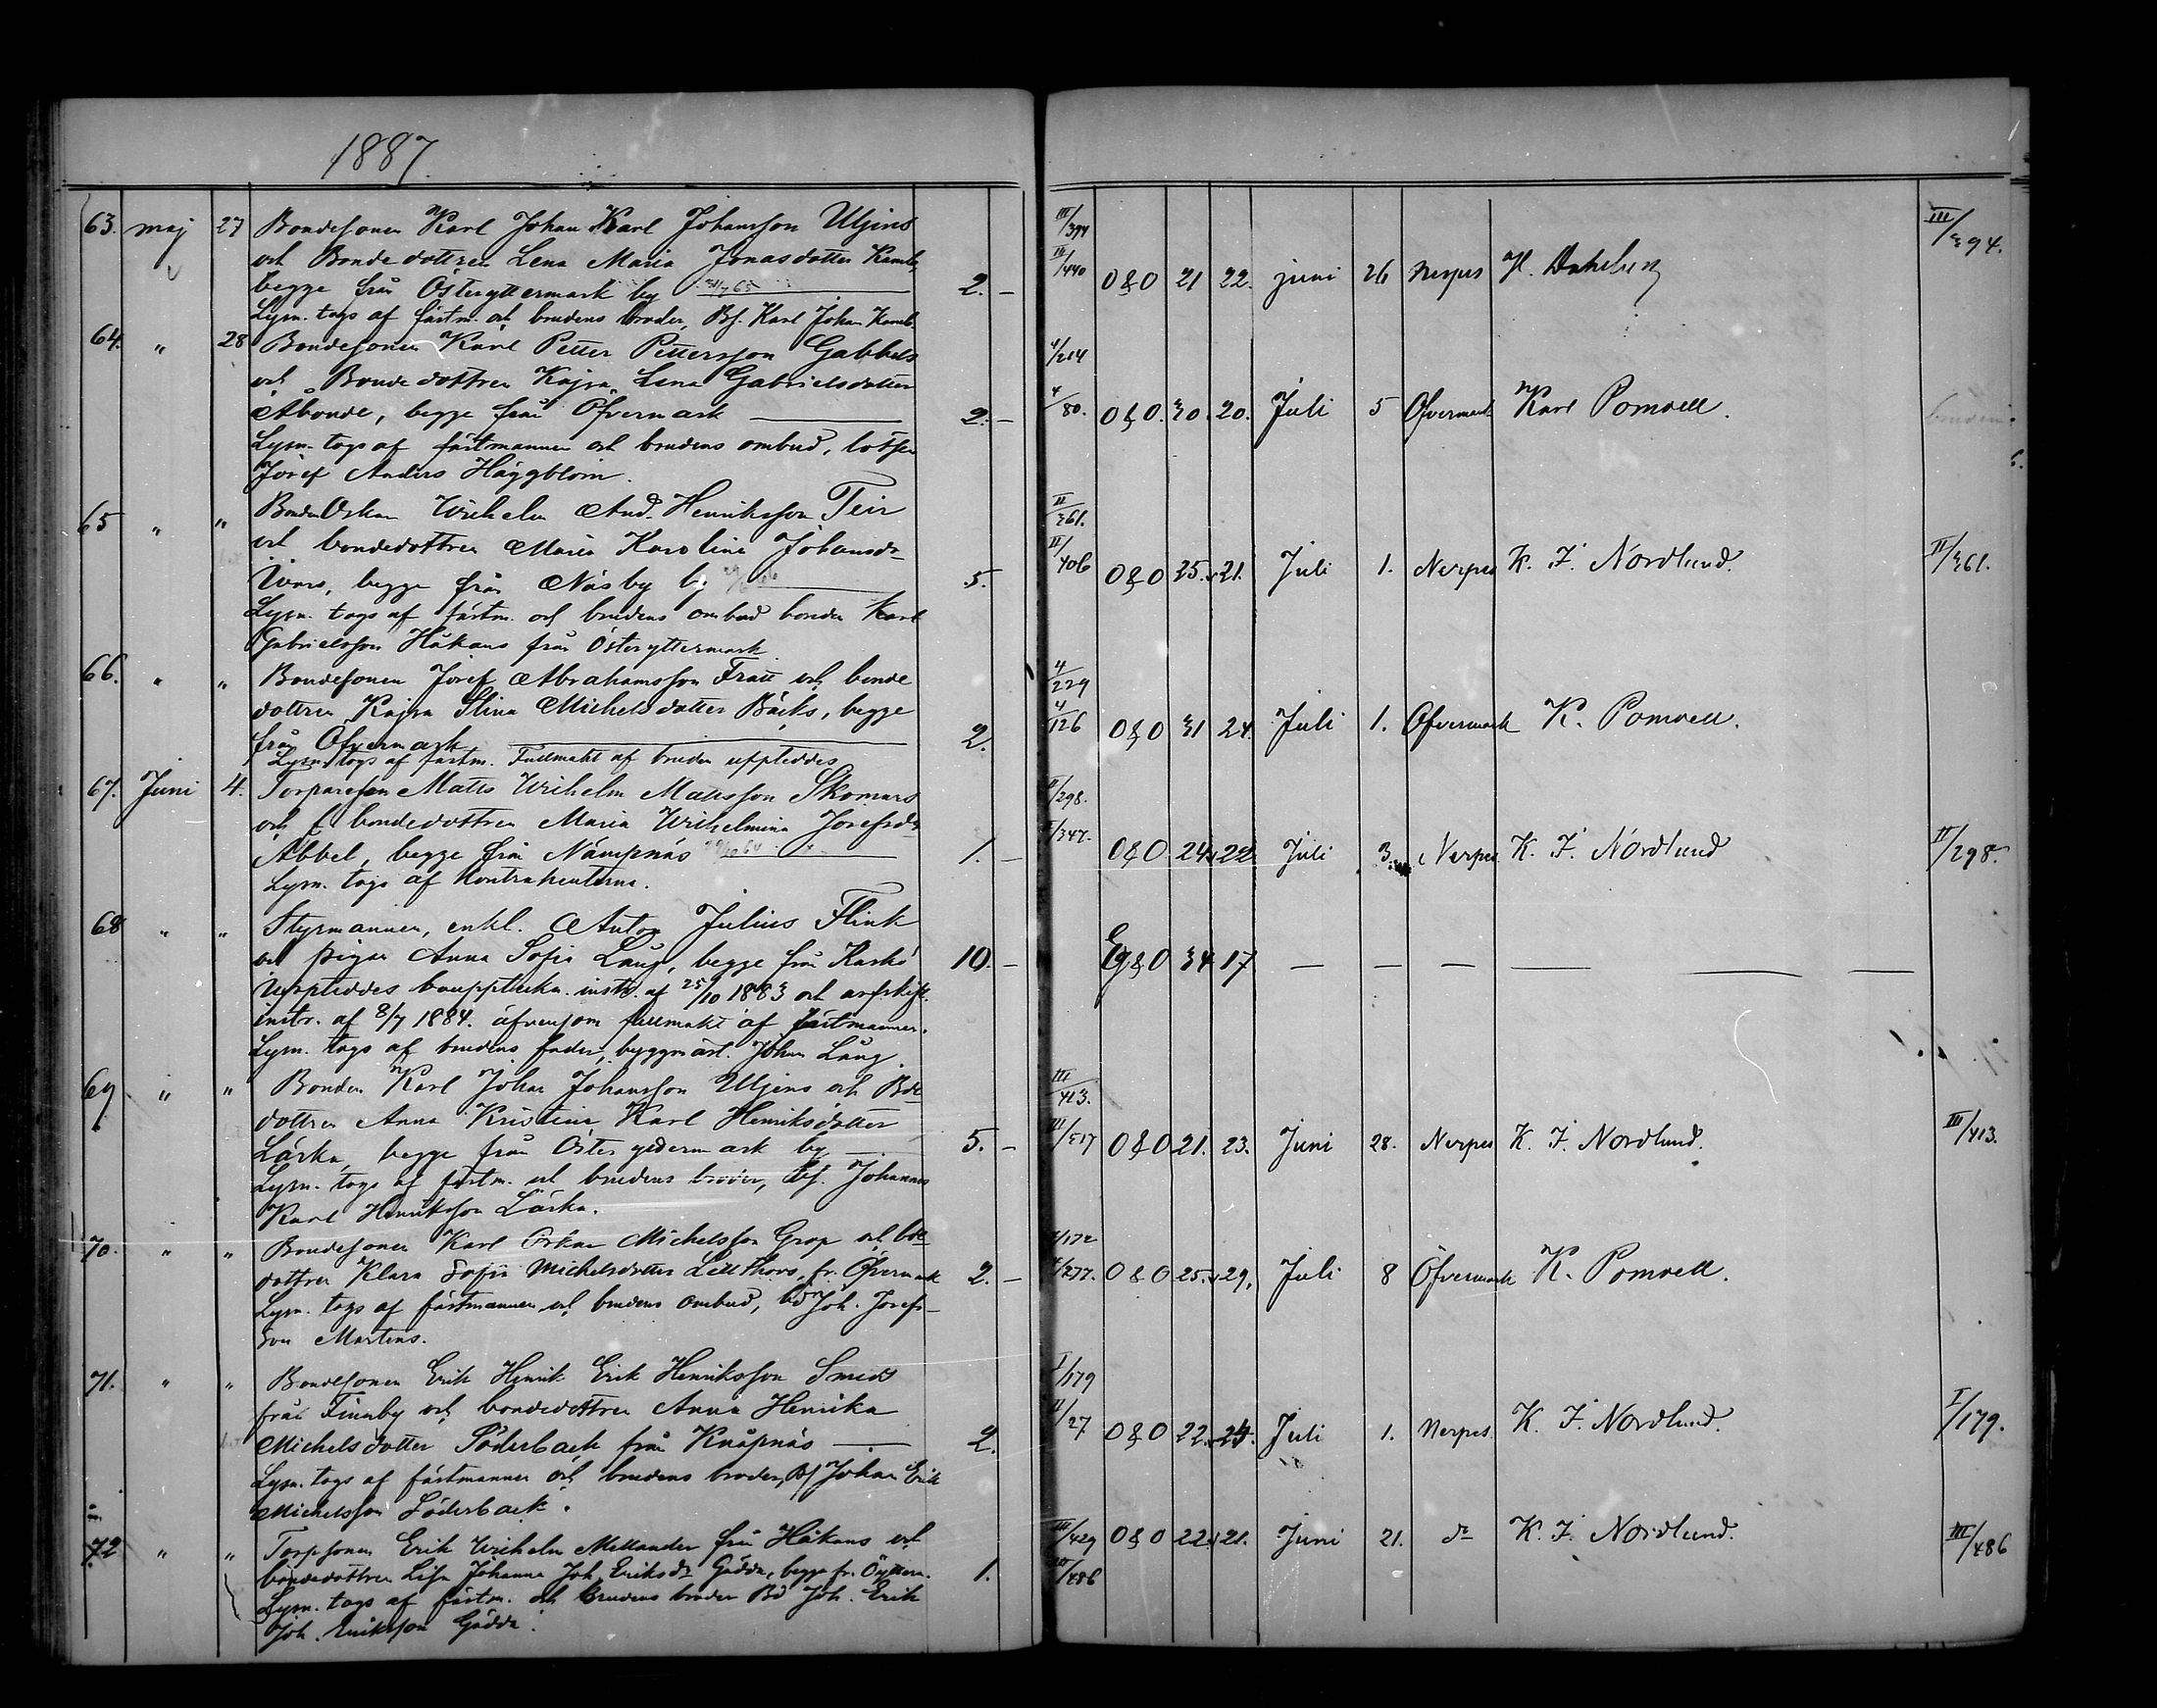 1887.
63. maj 27 Bondesonen Karl Johan Karl Johansson Uljens
och Bondedottren Lena Maria Jonasdotter Kamb,
begge från Österyttermark by 2. –
Lysn. togs af fästm. och brudens broder, Bs. Karl Johan Kamb.
III/394
III/440 O & O 21 22. juni 26 Nerpes K. Dahlberg III/394.
64. " 28 Bondesonen Karl Petter Pettersson Gabbels
och Bondedottren Kajsa Lena Gabrielsdotter
Åbonde, begge från Öfvermark 2. –
Lysn. togs af fästmannen och brudens ombud, lotsen
Josef Anders Häggblom.
4/214
4/80. O & O. 30. 20. Juli 5 Öfvermark Karl Pomoell.
65 " " Bonden Oskar Wilhelm And. Henriksson Teir
och bondedottren Maria Karolina Johansdr
Ivars, begge från Näsby by 5.
Lysn. togs af fästm. och brudens ombud bonden Karl
Gabrielsson Håkans från Österyttermark
II/361.
II/406 O & O 25. 21. Juli 1. Nerpes K. J. Nordlund. II/361.
66. " " Bondesonen Josef Abrahamsson Fratt och bonde
dottren Kajsa Stina Michelsdotter Bäcks, begge
från Öfvermark 2.
Lysn. togs af fästm. Fullmakt af bruden uppteddes
4/229
4/126 O & O 31 24. Juli 1. Öfvermark K. Pomoell.
67. Juni 4. Torparesonen Matts Wilhelm Mattsson Skomars
och bondedottren Maria Wilhelmina Josefsdr
Åbbel, begge från Nämpnäs 1. –
Lysn. togs af kontrahenterna.
II/298.
II/347. O & O 24 22 Juli 3. Nerpes K. J. Nordlund II/298.
68 " " Styrmannen, enkl. Anton Julius Flink
och pigan Anna Sofia Lång, begge från Kaskö 10. –
Uppteddes boupptekn. instr. af 25/10 1883 och arfskift.
instr. af 8/7 1884. äfvensom fullmakt af fästmannen.
Lysn. togs af brudens fader, byggmäst. Johan Lång.
E & O 34 17 – – – – – –
69 " " Bonden Karl Johan Johansson Uljens och Bde
dottren Anna Kristina Karl Henriksdotter
Lärka, begge från Österyttermark by 5. –
Lysn. togs af fästm. och brudens broder, Bs. Johannes
Karl Henriksson Lärka.
III/413.
III/517 O & O 21. 23. Juni 28. Nerpes K. J. Nordlund. III/413.
70. " " Bondesonen Karl Oskar Michelsson Grop och bde
dottren Klara Sofia Michelsdotter Lillthors, fr. Öfvermark 2. –
Lysn. togs af fästmannen och brudens ombud, bd Joh. Josefs-
son Martens.
4/172
4/277. O & O 25. 29. Juli 8 Öfvermark K. Pomoell.
71. " " Bondesonen Erik Henrik Erik Henriksson Smeds
från Finnby och bondedottren Anna Henrika
Michelsdotter Söderback från Knåpnäs 2.
Lysn. togs af fästmannen och brudens broder, Bs Johan Erik
Michelsson Söderback.
I/179
II/27 O & O 22. 24. Juli 1. Nerpes. K. J. Nordlund. I/179.
72 " " Torpsonen Erik Wilhelm Mellander från Håkans och
bondedottren Lisa Johanna Joh. Eriksdr Gädda, begge fr. Öytterm. 1.
Lysn. togs af fästm. och brudens broder Bd Joh. Erik
Joh. Eriksson Gädda.
III/429 O & O 22. 21. Juni 21. do K. J. Nordlund. III/486
III/486